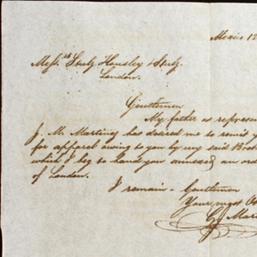 Mexico 12
Mess.rs Stulz Housley & Stulz,
London.
Gentlemen
My father as represen
J. M. Martinez has desired me to remit y
for apparel owing to you by my said Broth
which I beg to hand you annexed an ord
of London.
I remain - Gentlemen
Your most Ob
Mar